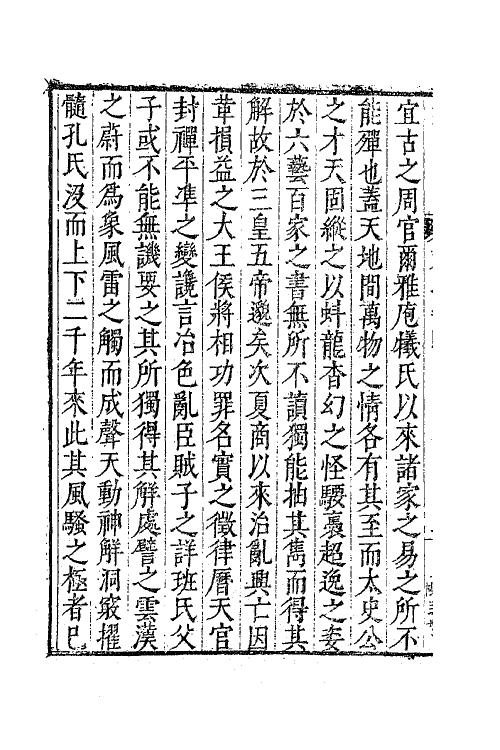 宜古之周官爾雅庖犧氏以來諸家之易之所不
能殫也蓋天地間萬物之情各有其至而太史公
之才天固縱之以蚪龍杳幻之怪騕褭超逸之姿
於六藝百家之書無所不讀獨能抽其雋而得其
解故於三皇五帝邈矣次夏商以來治亂興亡因
革損益之大王侯將相功罪名實之徵律曆天官
封禪平準之變讒言冶色亂臣賊子之詳班氏父
子或不能無譏要之其所獨得其解處譬之雲漢
之蔚而爲象風雷之觸而成聲天動神解洞竅擢
髓孔氏沒而上下二千年來此其風騷之極者已